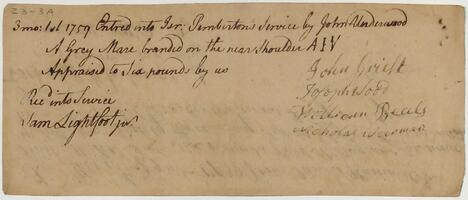 23-3A
3mo: 1st 1759 Entred into Isr: Pembertons Service by John Underwood
A Grey Mare branded on the near Shoulder AIV
Appraised to Six pounds by us
John Griest
Rec into Service
Joseph
William Beals
Sam Lightfoot junr
Nicholas Wierman